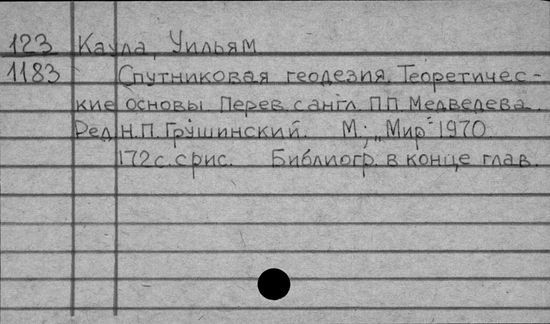 123 Каула, Уильям
1183 Спутниковая геодезия. Теоретичес-
кие основы Перев. с англ. П.П. Медведева.
Ред. Н.П. Грушинский. М., „Мир" 1970
172 с. с рис. Библиогр. в конце глав.